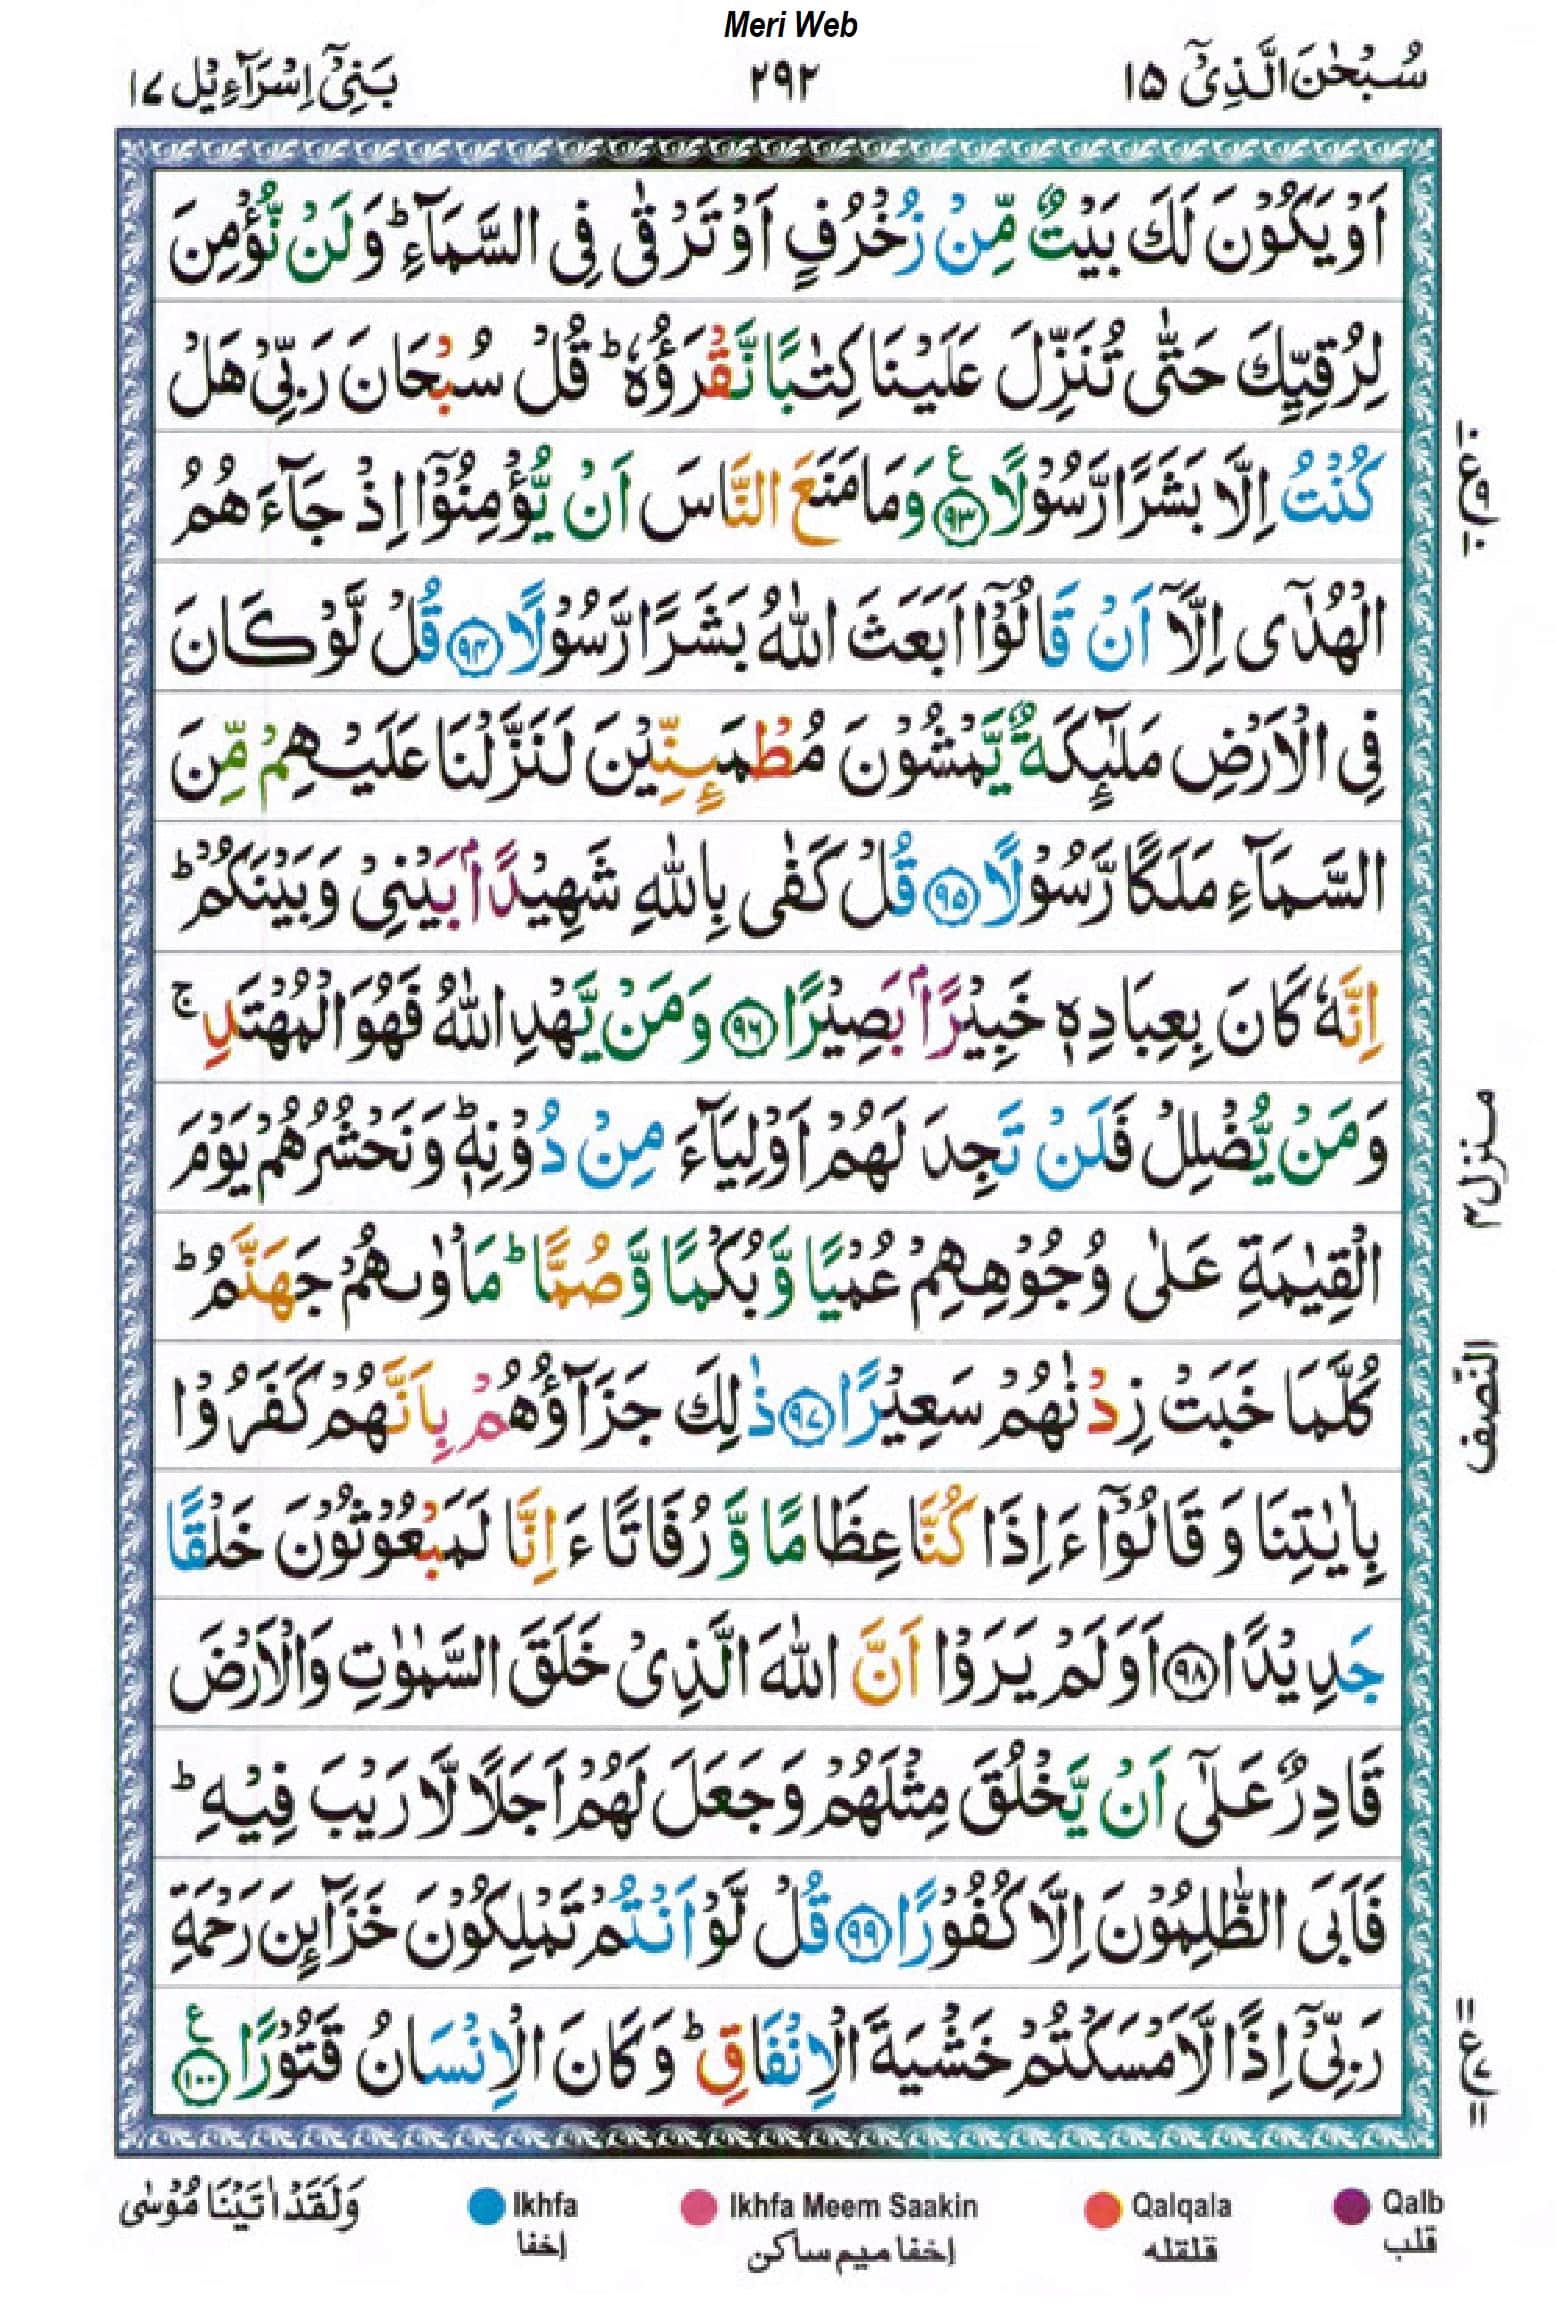 Meri Web
سُبْحٰنَ الَّذِیْۤ ۱۵
۲۹۲
بَنِیْۤ اِسْرَآءِیْل ۱۷
اَوْ یَكُوْنَ لَكَ بَیْتٌ مِّنْ زُخْرُفٍ اَوْ تَرْقٰی فِی السَّمَآءِ ؕ وَ لَنْ نُّؤْمِنَ
لِرُقِیِّكَ حَتّٰی تُنَزِّلَ عَلَیْنَا كِتٰبًا نَّقْرَؤُهٗ ؕ قُلْ سُبْحَانَ رَبِّیْ هَلْ
كُنْتُ اِلَّا بَشَرًا رَّسُوْلًا ﴿۹۳﴾ ع وَ مَا مَنَعَ النَّاسَ اَنْ یُّؤْمِنُوْۤا اِذْ جَآءَهُمُ
الْهُدٰۤی اِلَّاۤ اَنْ قَالُوْۤا اَبَعَثَ اللّٰهُ بَشَرًا رَّسُوْلًا ﴿۹۴﴾ قُلْ لَّوْ كَانَ
فِی الْاَرْضِ مَلٰٓىِٕكَةٌ یَّمْشُوْنَ مُطْمَىِٕنِّیْنَ لَنَزَّلْنَا عَلَیْهِمْ مِّنَ
السَّمَآءِ مَلَكًا رَّسُوْلًا ﴿۹۵﴾ قُلْ كَفٰی بِاللّٰهِ شَهِیْدًۢا بَیْنِیْ وَ بَیْنَكُمْ ؕ
اِنَّهٗ كَانَ بِعِبَادِهٖ خَبِیْرًۢا بَصِیْرًا ﴿۹۶﴾ وَ مَنْ یَّهْدِ اللّٰهُ فَهُوَ الْمُهْتَدِ ۚ
وَ مَنْ یُّضْلِلْ فَلَنْ تَجِدَ لَهُمْ اَوْلِیَآءَ مِنْ دُوْنِهٖ ؕ وَ نَحْشُرُهُمْ یَوْمَ
الْقِیٰمَةِ عَلٰی وُجُوْهِهِمْ عُمْیًا وَّ بُكْمًا وَّ صُمًّا ؕ مَاْوٰىهُمْ جَهَنَّمُ ؕ
كُلَّمَا خَبَتْ زِدْنٰهُمْ سَعِیْرًا ﴿۹۷﴾ ذٰلِكَ جَزَآؤُهُمْ بِاَنَّهُمْ كَفَرُوْا
بِاٰیٰتِنَا وَ قَالُوْۤا ءَاِذَا كُنَّا عِظَامًا وَّ رُفَاتًا ءَاِنَّا لَمَبْعُوْثُوْنَ خَلْقًا
جَدِیْدًا ﴿۹۸﴾ اَوَ لَمْ یَرَوْا اَنَّ اللّٰهَ الَّذِیْ خَلَقَ السَّمٰوٰتِ وَ الْاَرْضَ
قَادِرٌ عَلٰۤی اَنْ یَّخْلُقَ مِثْلَهُمْ وَ جَعَلَ لَهُمْ اَجَلًا لَّا رَیْبَ فِیْهِ ؕ
فَاَبَی الظّٰلِمُوْنَ اِلَّا كُفُوْرًا ﴿۹۹﴾ قُلْ لَّوْ اَنْتُمْ تَمْلِكُوْنَ خَزَآىِٕنَ رَحْمَةِ
رَبِّیْۤ اِذًا لَّاَمْسَكْتُمْ خَشْیَةَ الْاِنْفَاقِ ؕ وَ كَانَ الْاِنْسَانُ قَتُوْرًا ﴿۱۰۰﴾ ع
۱۰ ع ۹ ۱۰
منزل۴
النّصف
۱۱ ع ۷ ۱۱
وَلَقَدْ اٰتَیْنَا مُوْسٰی
Ikhfa
اخفا
Ikhfa Meem Saakin
اخفا میم ساکن
Qalqala
قلقله
Qalb
قلب